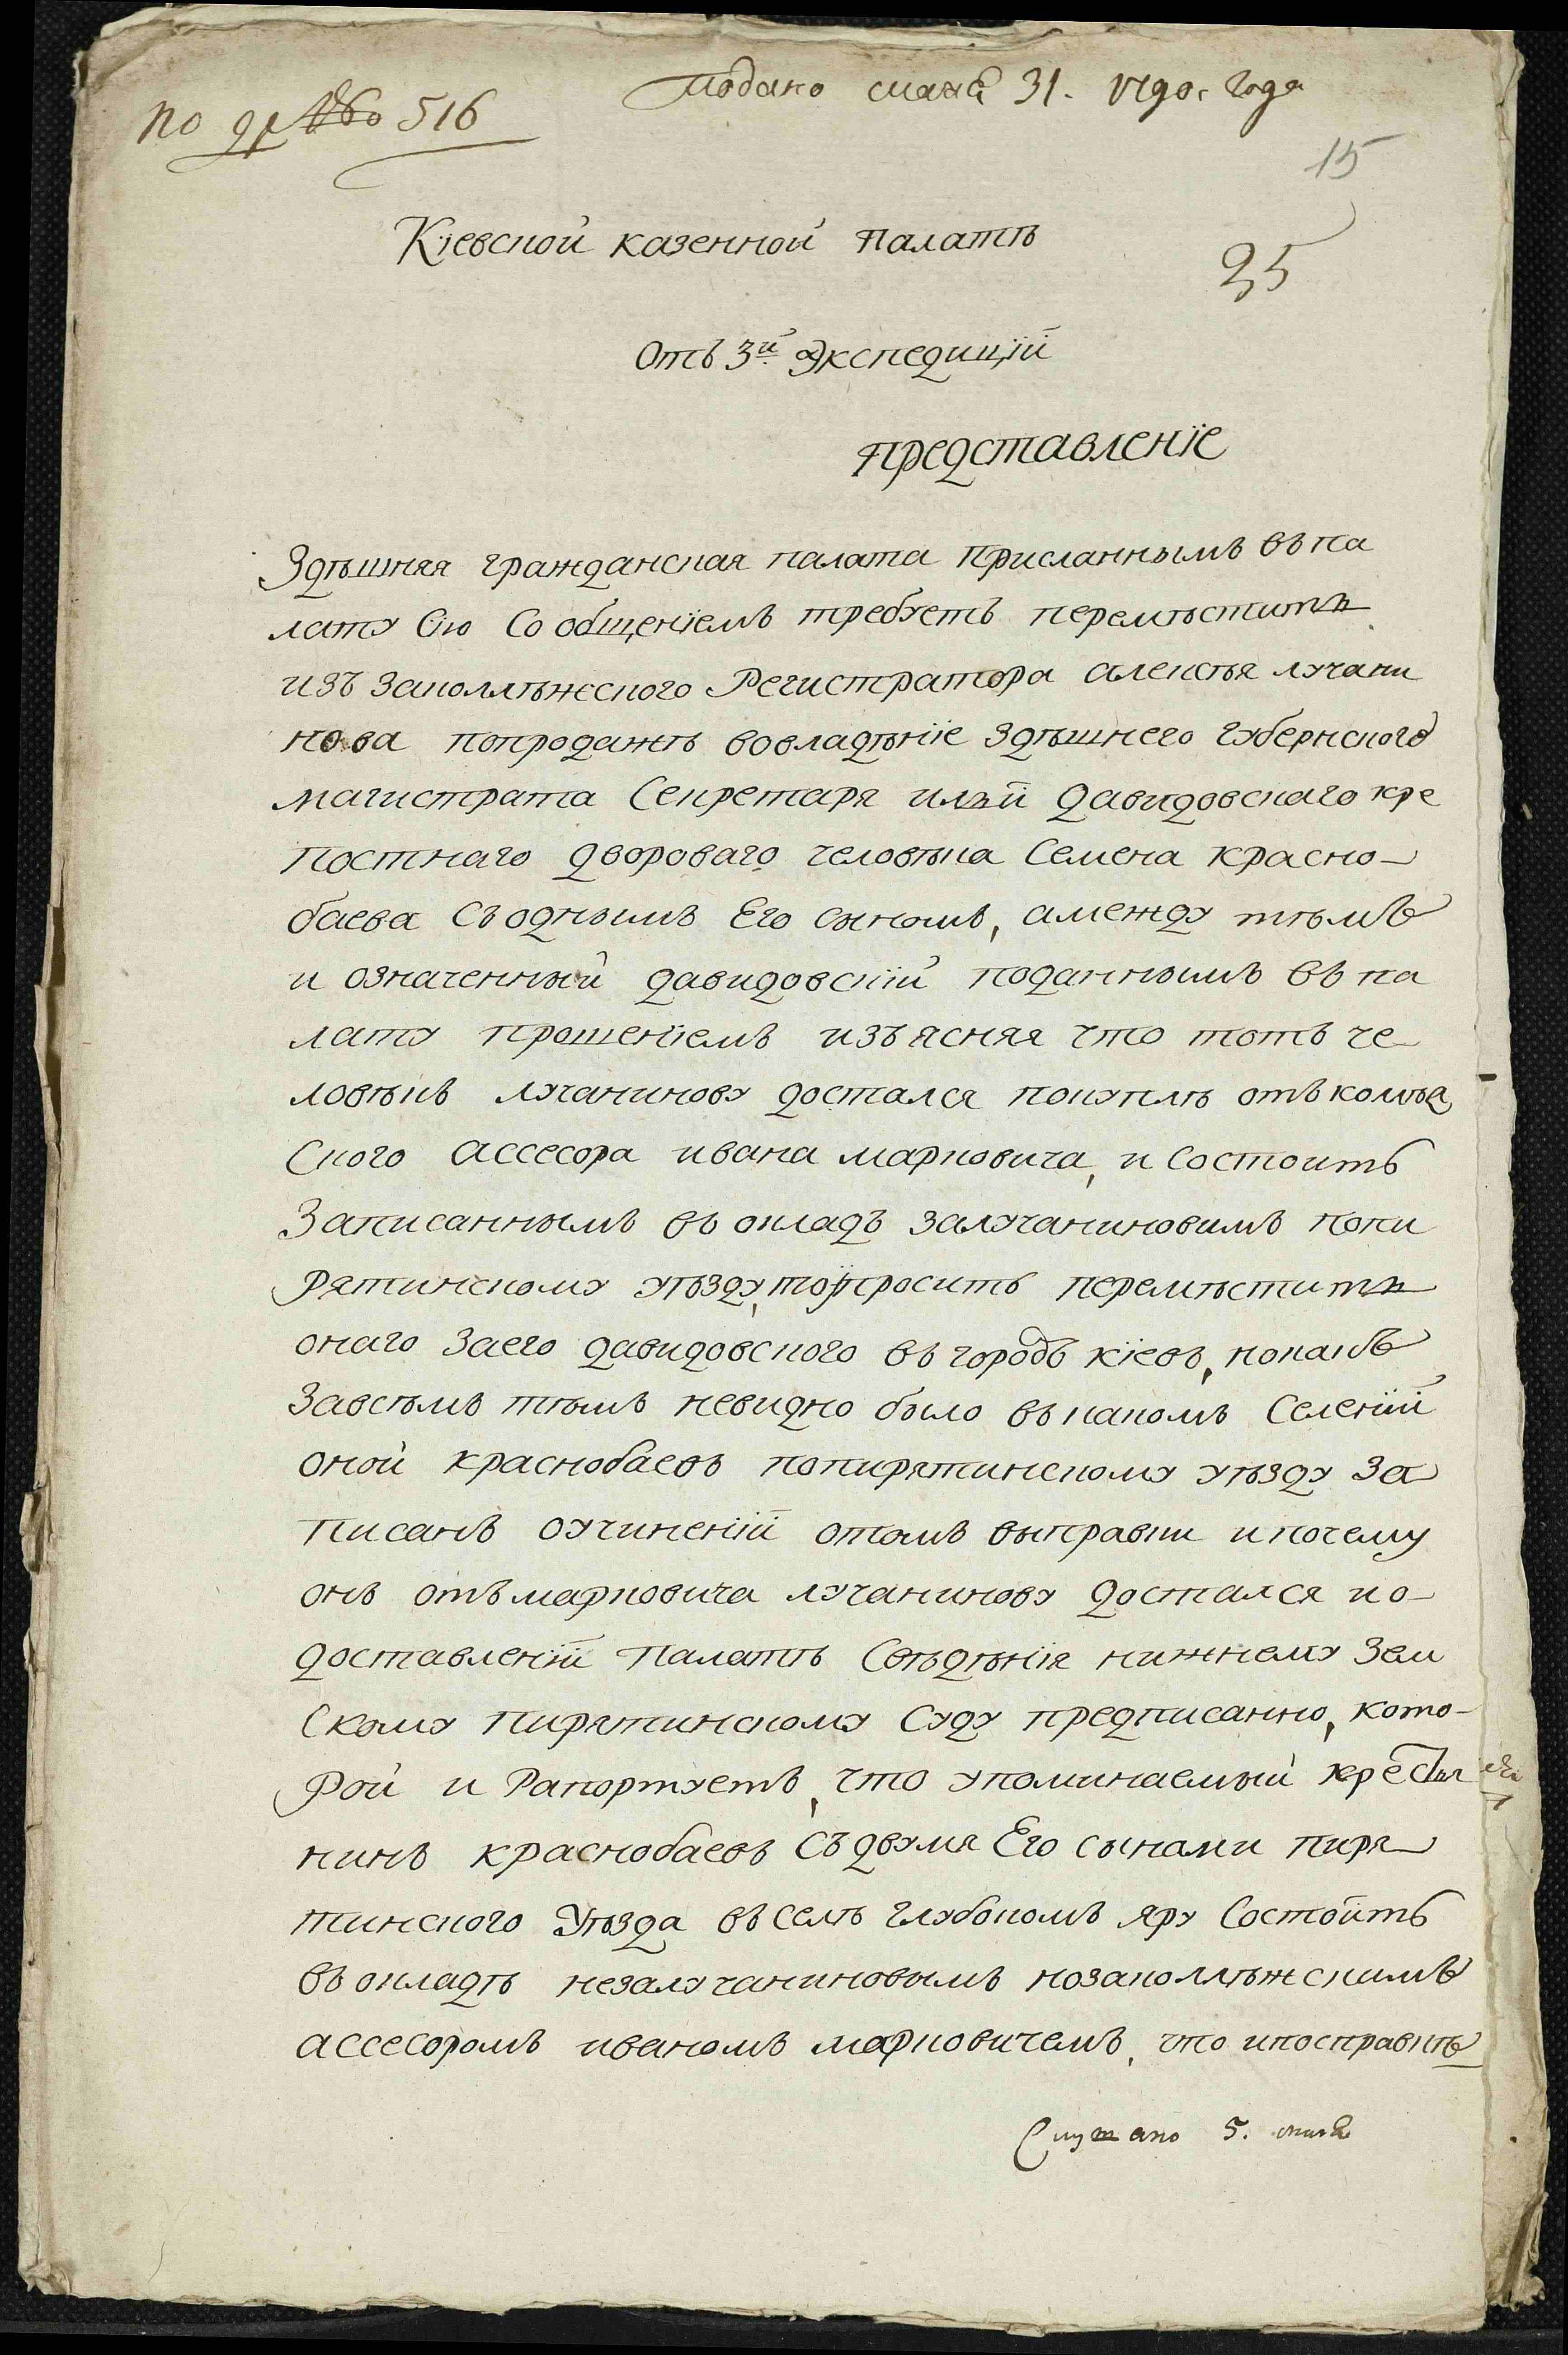 Подано мая 31. 1790. года
по 516
15
Кіевской казенной палатѣ
35
Отъ 3й Экспедицїй
представленїе
Здѣшняя гражданская палата присланнымъ въ па
лату Сію Сообщенїемъ требуетъ перемѣстить
изъ за коллѣжского Регистратора алексѣя лучани
нова попродажѣ вовладѣнїе здѣшнего губернского
магистрата Секретаря ильй давидовскаго кре
постнаго дворового человѣка Семена красно-
баева съ однымъ Его сыномъ, а между тѣмъ
и означенный давидовскїй поданнымъ въ па
лату прошенїемъ изъясняя что тотъ че-
ловѣкъ лучанинову достался покупкѣ отъ колѣж
ского ассесора ивана марковича, и состоитъ
Записаннымъ въ окладъ залучаниновимъ попи
рятинскому уѣзду, то проситъ перемѣстить
онаго заего давидовского въ городъ кїевъ, но какъ
завсѣмъ тѣмъ невидно было въ какомъ Селенїй
оной краснобаевъ попирятинскому уѣзду за
писанъ оучиненїй отомъ выправки и почему
онъ отъ марковича лучанинову достался и о-
доставленїй палатѣ Свѣдѣнїя нижнему Зем
скому пирятинскому суду предписанно, кото-
рой и рапортуетъ, что упоминаемый крестья
нинъ краснобаевъ съ двумя Его сынами пиря
тинского Уѣзда въ селѣ глубокомъ яру Состоитъ
въ окладѣ незалучаниновымъ нозаколлѣжскимъ
ассесоромъ иваномъ марковичемъ, что и посправкѣ
Слушано 5. июня